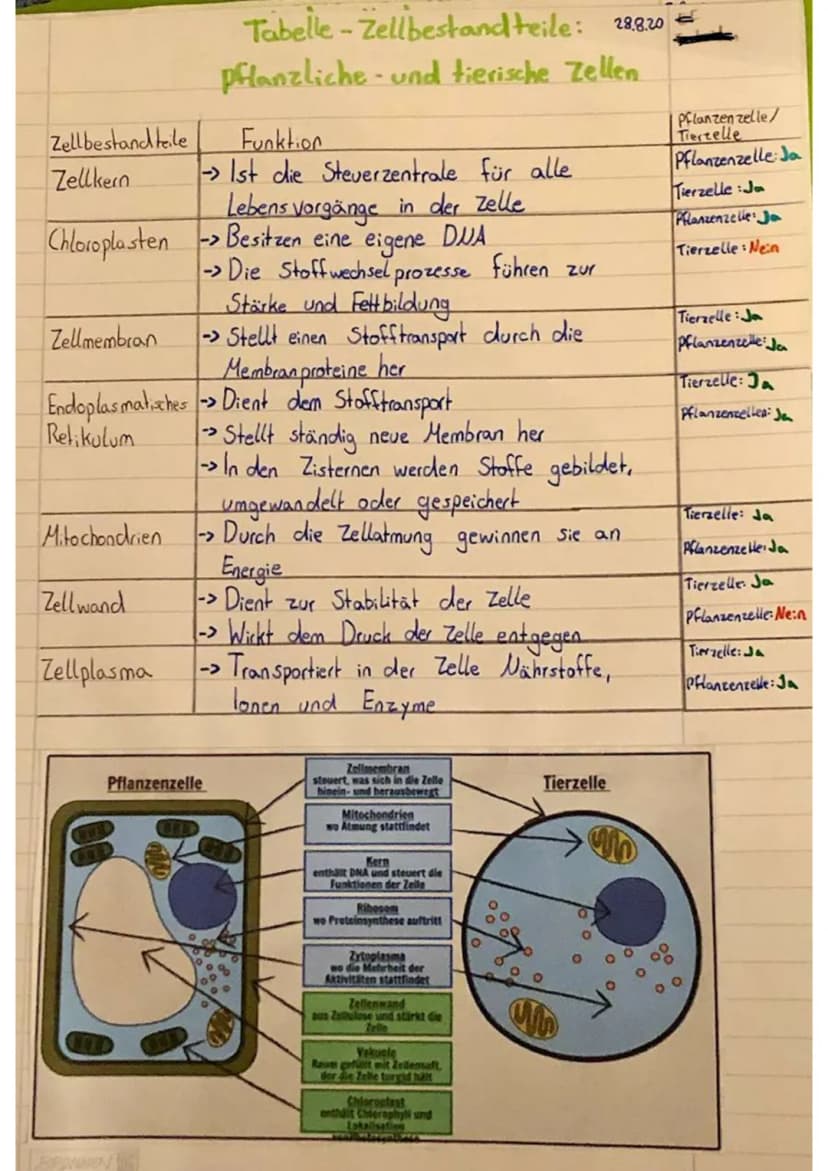 Tabelle - Zellbestandteile:
28.8.20
pflanzliche - und tierische Zellen
Zellbestandteile
Funktion
Pflanzenzelle/
Tierzelle
Zellkern
-> Ist die Steuerzentrale für alle
Lebensvorgänge in der Zelle
Pflanzenzelle: Ja
Tierzelle: Ja
Chloroplasten
-> Besitzen eine eigene DNA
-> Die Stoffwechselprozesse führen zur
Stärke und Fettbildung
Pflanzenzelle: Ja
Tierzelle: Nein
Zellmembran
-> Stellt einen Stofftransport durch die
Membranproteine her
Tierzelle: Ja
Pflanzenzelle: Ja
Endoplasmatisches
Retikulum
-> Dient dem Stofftransport
-> Stellt ständig neue Membran her
-> In den Zisternen werden Stoffe gebildet,
umgewandelt oder gespeichert
Tierzelle: Ja
Pflanzenzellen: Ja
Mitochondrien
-> Durch die Zellatmung gewinnen sie an
Energie
Tierzelle: Ja
Pflanzenzelle: Ja
Zellwand
-> Dient zur Stabilität der Zelle
-> Wirkt dem Druck der Zelle entgegen
Tierzelle: Ja
Pflanzenzelle: Nein
Zellplasma
-> Transportiert in der Zelle Nährstoffe,
Ionen und Enzyme
Tierzelle: Ja
Pflanzenzelle: Ja
Pflanzenzelle
Tierzelle
Zellmembran
steuert, was sich in die Zelle
hinein- und herausbewegt
Mitochondrien
wo Atmung stattfindet
Kern
enthält DNA und steuert die
Funktionen der Zelle
Ribosom
wo Proteinsynthese auftritt
Zytoplasma
wo die Mehrheit der
Aktivitäten stattfindet
Zellenwand
aus Zellulose und stärkt die
Zelle
Vakuole
Raum gefüllt mit Zellensaft,
der die Zelle turgid hält
Chloroplast
enthält Chlorophyll und
Lokalisation